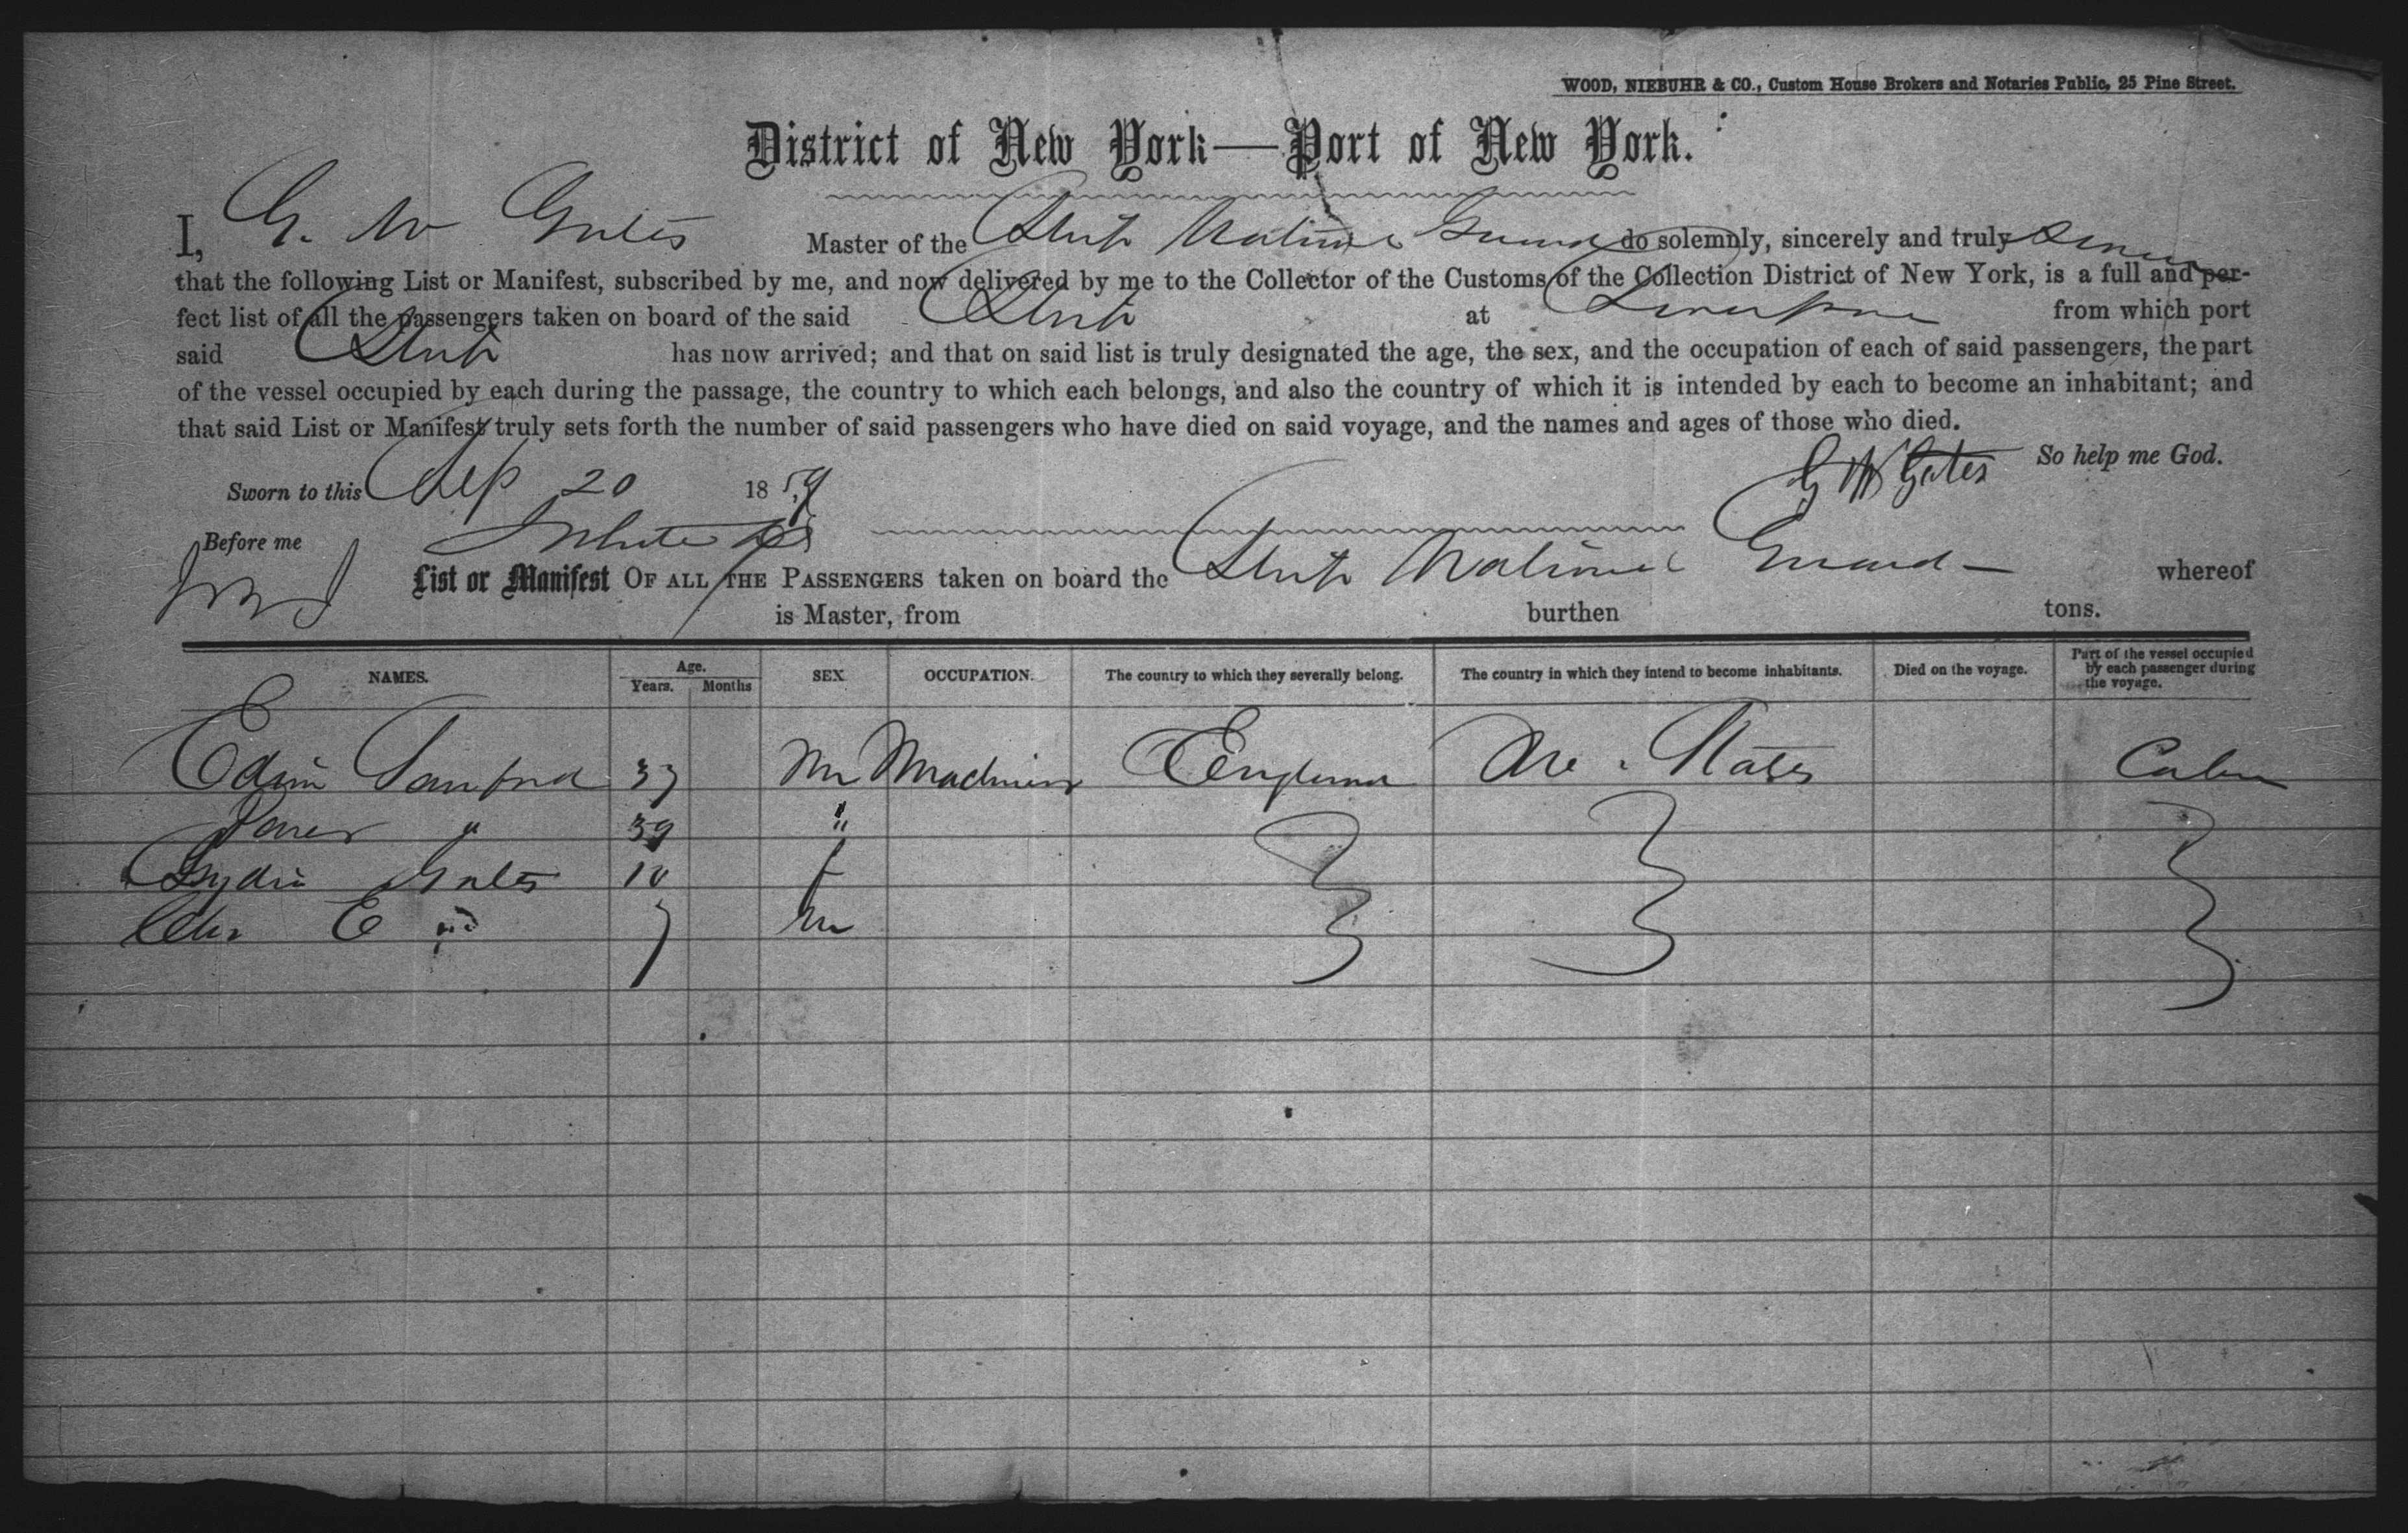 WOOD, NIEBUHR & CO., Custom House Brokers and Notaries Public, 25 Pine Street.
District of New York—Port of New York.
I, G. W Gates Master of the Ship National Guard do solemnly, sincerely and truly swear
that the following List or Manifest, subscribed by me, and now delivered by me to the Collector of the Customs of the Collection District of New York, is a full and per-
fect list of all the passengers taken on board of the said Ship at Liverpool from which port
said Ship has now arrived; and that on said list is truly designated the age, the sex, and the occupation of each of said passengers, the part
of the vessel occupied by each during the passage, the country to which each belongs, and also the country of which it is intended by each to become an inhabitant; and
that said List or Manifest truly sets forth the number of said passengers who have died on said voyage, and the names and ages of those who died.
So help me God.
G W Gates
Sworn to this Sep 20 1859
Before me
List or Manifest OF ALL THE PASSENGERS taken on board the Ship National Guard — whereof
is Master, from burthen tons.
NAMES. Age. Years. Months SEX OCCUPATION. The country to which they severally belong. The country in which they intend to become inhabitants. Died on the voyage. Part of the vessel occupied by each passenger during the voyage.
Edwin Sanford 37 m England States Cabin
" 39 "
Lydia Gates 10 f
E 7 m